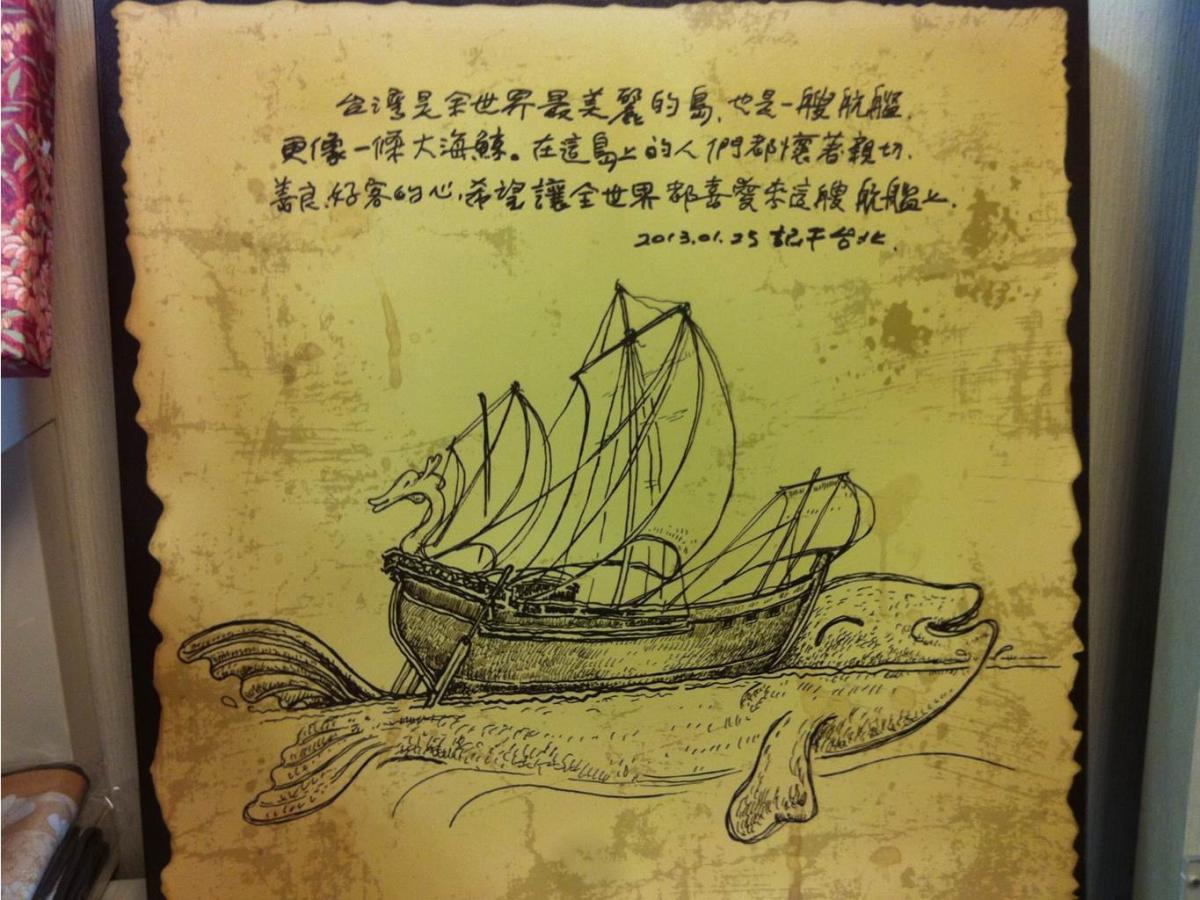 台灣是全世界最美麗的島,也是一艘航艦.
更像一條大海鯨。在這島上的人們都懷著親切.
善良.好客的心,希望讓全世界都喜愛來這艘航艦上.
2013.01.25 記于台北.